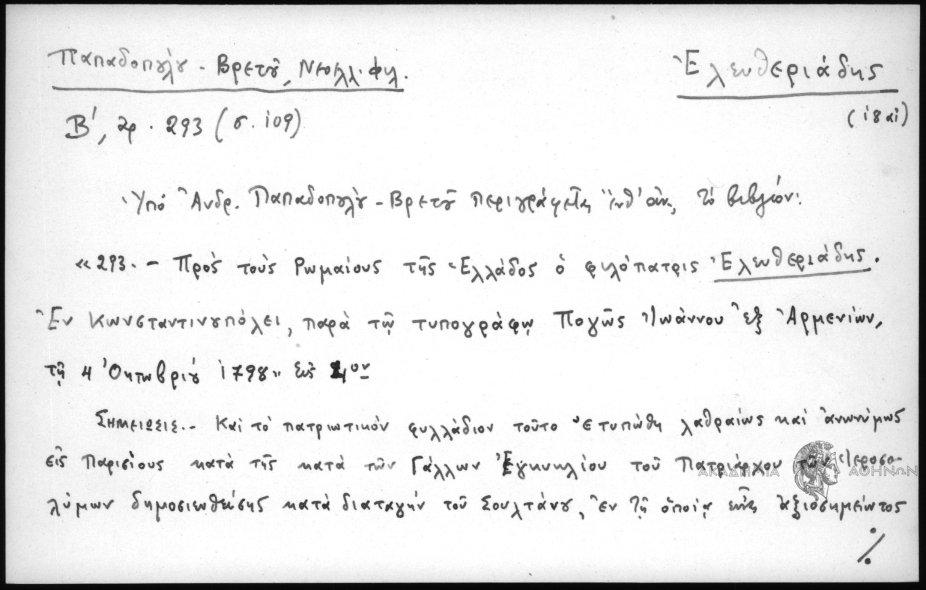 Παπαδοπούλου - Βρετοῦ, Νεοελλ. φιλ. Ἐλευθεριάδης
Β', ἀρ. 293 (σ. 109) (18 αἰ)
Ὑπό Ἀνδρ. Παπαδοπούλου - Βρετοῦ περιγράφεται τό βιβλίον:
«293. - Πρός τούς Ρωμαίους τῆς Ἑλλάδος ὁ φιλόπατρις Ἐλευθεριάδης.
Ἐν Κωνσταντινουπόλει, παρά τῷ τυπογράφῳ Πογῶς Ἰωάννου ἐξ Ἀρμενίων,
τῇ 4 Ὀκτωβρίου 1798» εἰς 4ον
Σημείωσις.- Καί τό πατριωτικόν φυλλάδιον τοῦτο ἐτυπώθη λαθραίως καί ἀνωνύμως
εἰς Παρισίους κατά τῆς κατά τῶν Γάλλων Ἐγκυκλίου τοῦ Πατριάρχου τῶν Ἱεροσο-
λύμων δημοσιευθείσης κατά διαταγήν τοῦ Σουλτάνου, ἐν τῇ ὁποίᾳ εἶναι ἀξιοσημείωτος
·/.
ΑΚΑΔΗΜΙΑ ΑΘΗΝΩΝ